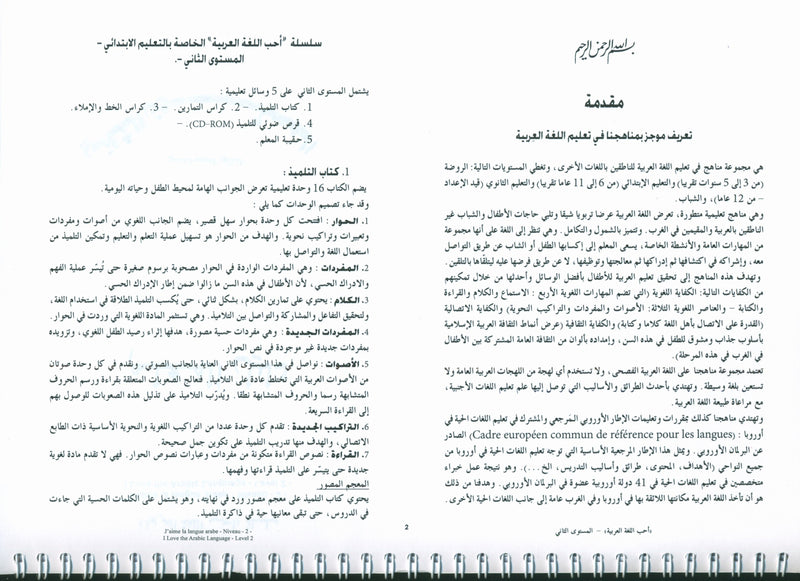 بسم الله الرحمن الرحيم
مقدمة
تعريف موجز بمناهجنا في تعليم اللغة العربية
هي مجموعة مناهج في تعليم اللغة العربية للناطقين باللغات الأخرى، وتغطي المستويات التالية: الروضة
(من 3 إلى 5 سنوات تقريبا) والتعليم الابتدائي (من 6 إلى 11 عاما تقريبا) والتعليم الثانوي (قيد الإعداد
– من 12 عاما)، والشباب.
وهي مناهج تعليمية متطورة، تعرض اللغة العربية عرضا تربويا شيقا وتلبي حاجات الأطفال والشباب غير
الناطقين بالعربية والمقيمين في الغرب. وتتميز بالشمول والتكامل. وهي تنظر إلى اللغة على أنها مجموعة
من المهارات العامة والأنشطة الخاصة، يسعى المعلم إلى إكسابها الطفل أو الشاب عن طريق التواصل
معه، وإشراكه في اكتشافها ثم إدراكها ثم معالجتها وتوظيفها، لا عن طريق فرضها عليه ليتلقّاها بالتلقين.
وتهدف هذه المناهج إلى تحقيق تعليم العربية للأطفال بأفضل الوسائل وأحدثها من خلال تمكينهم
من الكفايات التالية: الكفاية اللغوية (التي تضم المهارات اللغوية الأربع : الاستماع والكلام والقراءة
والكتابة – والعناصر اللغوية الثلاثة: الأصوات والمفردات والتراكيب النحوية) والكفاية الاتصالية
(القدرة على الاتصال بأهل اللغة كلاما وكتابة) والكفاية الثقافية (عرض أنماط الثقافة العربية الإسلامية
بأسلوب جذاب ومشوق للطفل في هذه السن، وإمداده بألوان من الثقافة العامة المشتركة بين الأطفال
في الغرب في هذه المرحلة).
تعتمد مجموعة مناهجنا على اللغة العربية الفصحى، ولا تستخدم أي لهجة من اللهجات العربية العامة ولا
تستعين بلغة وسيطة. وتهتدي بأحدث الطرائق والأساليب التي توصل إليها علم تعليم اللغات الأجنبية،
مع مراعاة طبيعة اللغة العربية.
وتهتدي مناهجنا كذلك بمقررات وتعليمات الإطار الأوروبي المرجعي والمشترك في تعليم اللغات الحية في
أوروبا : (Cadre européen commun de référence pour les langues) الصادر
عن البرلمان الأوروبي. ويمثل هذا الإطار المرجعية الأساسية التي توجه تعليم اللغات الحية في أوروبا من
جميع النواحي (الأهداف، المحتوى، طرائق وأساليب التدريس، الخ...). وهو نتيجة عمل خبراء
متخصصين في تعليم اللغات الحية في 41 دولة أوروبية عضوة في البرلمان الأوروبي. وهدفنا من ذلك
هو أن تأخذ اللغة العربية مكانتها اللائقة بها في أوروبا وفي الغرب عامة إلى جانب اللغات الحية الأخرى.
«أحب اللغة العربية» – المستوى الثاني
2
سلسلة "أحب اللغة العربية" الخاصة بالتعليم الابتدائي –
المستوى الثاني –.
يشتمل المستوى الثاني على 5 وسائل تعليمية :
1. كتاب التلميذ. – 2. كراس التمارين. – 3. كراس الخط والإملاء.
4. قرص ضوئي للتلميذ (CD-ROM). –
5. حقيبة المعلم.
1. كتاب التلميذ:
يضم الكتاب 16 وحدة تعليمية تعرض الجوانب الهامة لمحيط الطفل وحياته اليومية.
وقد جاء تصميم الوحدات كما يلي :
1. الحوار : افتتحت كل وحدة بحوار سهل قصير، يضم الجانب اللغوي من أصوات ومفردات
وتعبيرات وتراكيب نحوية. والهدف من الحوار هو تسهيل عملية التعلم والتعليم وتمكين التلميذ من
استعمال اللغة والتواصل بها.
2. المفردات : وهي المفردات الواردة في الحوار مصحوبة برسوم صغيرة حتى تُيسّر عملية الفهم
والإدراك الحسي، لأن الأطفال في هذه السن ما زالوا ضمن إطار الإدراك الحسي.
3. الكلام : يحتوي على تمارين الكلام، بشكل ثنائي، حتى يُكسب التلميذ الطلاقة في استخدام اللغة،
ولتحقيق التفاعل والمشاركة والتواصل بين التلاميذ. وهي تستثمر المادة اللغوية التي وردت في الحوار.
4. المفردات الجديدة : وهي مفردات حسية مصورة، هدفها إثراء رصيد الطفل اللغوي، وتزويده
بمفردات جديدة غير موجودة في نص الحوار.
5. الأصوات : نواصل في هذا المستوى الثاني العناية بالجانب الصوتي. ونقدم في كل وحدة صوتان
من الأصوات العربية التي تختلط عادة على التلاميذ. فنعالج الصعوبات المتعلقة بقراءة ورسم الحروف
المتشابهة رسما والحروف المتشابهة نطقا. ويُدرّب التلاميذ على تذليل هذه الصعوبات للوصول بهم
إلى القراءة السريعة.
6. التراكيب الجديدة : تقدم كل وحدة عددا من التراكيب اللغوية والنحوية الأساسية ذات الطابع
الاتصالي، والهدف منها تدريب التلميذ على تكوين جمل صحيحة.
7. القراءة : نصوص القراءة مكونة من مفردات وعبارات نصوص الحوار. فهي لا تقدم مادة لغوية
جديدة حتى يتيسّر على التلميذ قراءتها وفهمها.
المعجم المصور
يحتوي كتاب التلميذ على معجم مصور ورد في نهايته، وهو يشتمل على الكلمات الحسية التي جاءت
في الدروس، حتى تبقى معانيها حية في ذاكرة التلميذ.
J'aime la langue arabe - Niveau - 2 -
I Love the Arabic Language - Level 2